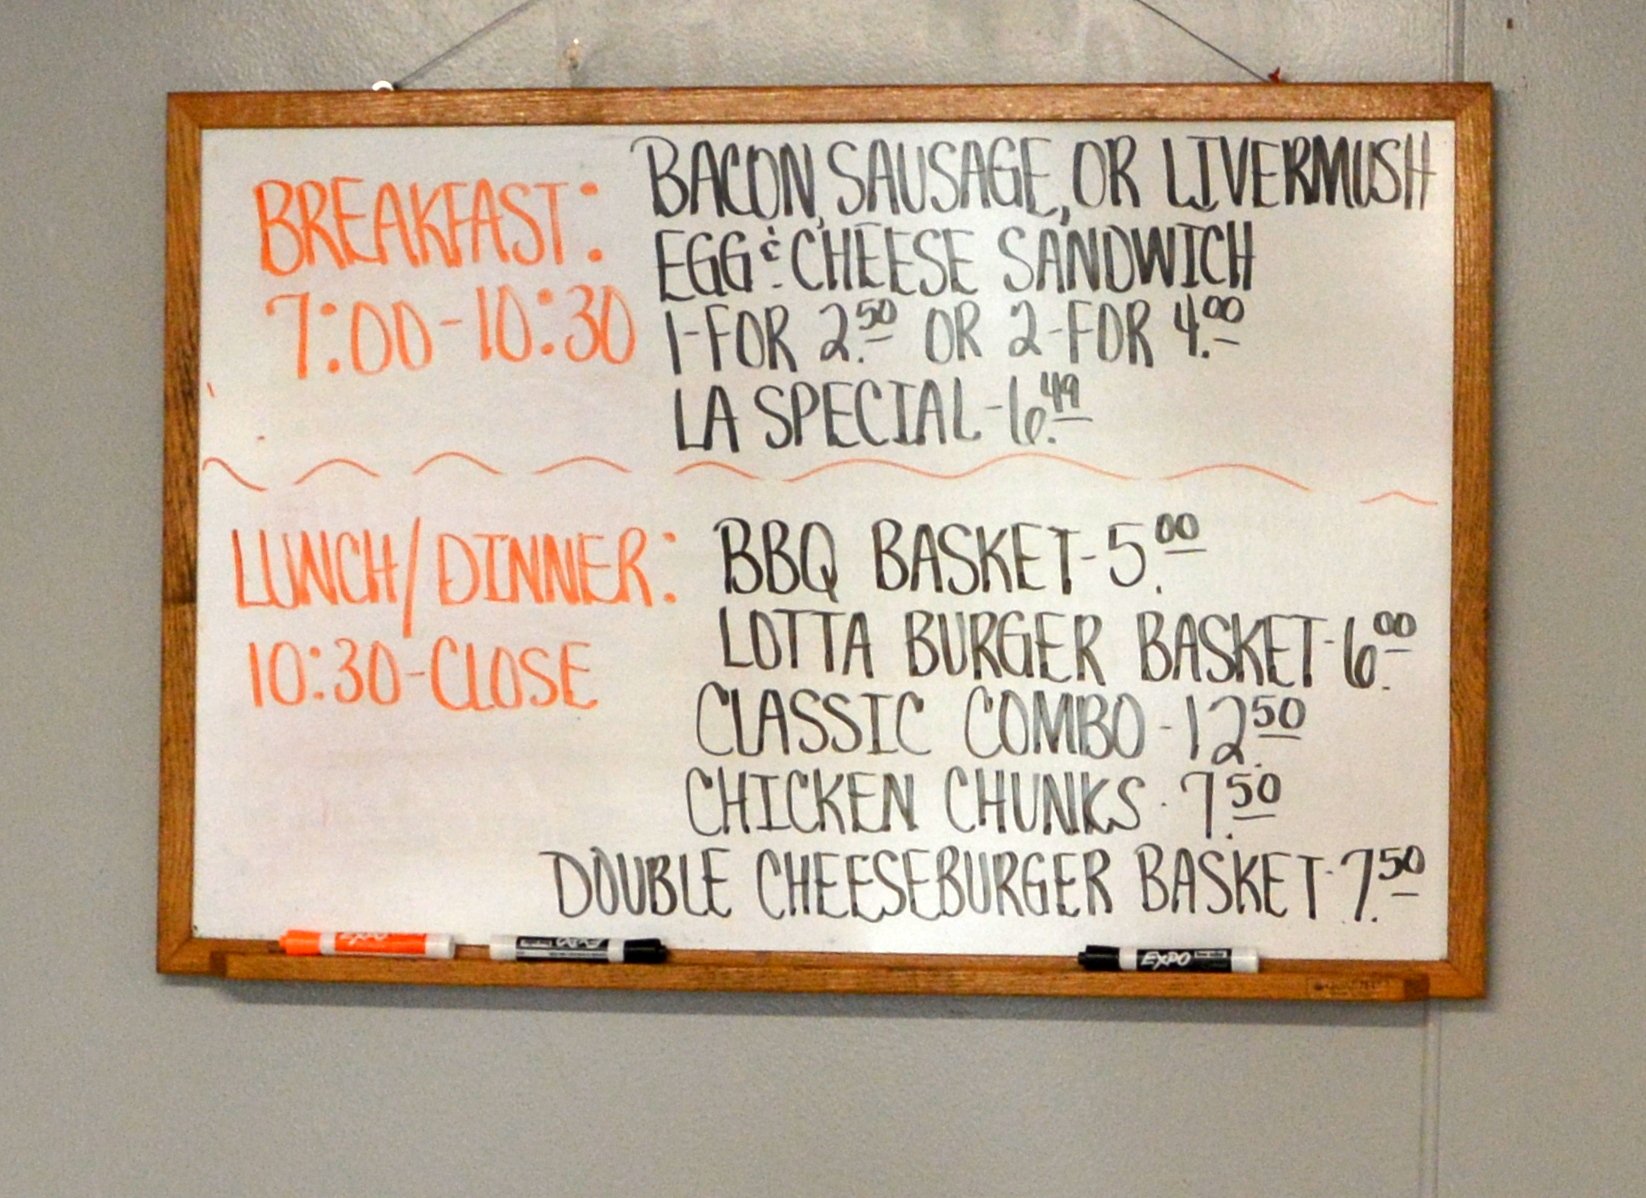 BREAKFAST:
7:00-10:30
BACON, SAUSAGE, OR LIVERMUSH
EGG & CHEESE SANDWICH
1-FOR 2.50 OR 2-FOR 4.00
LA SPECIAL-6.49
LUNCH/DINNER:
10:30-CLOSE
BBQ BASKET-5.00
LOTTA BURGER BASKET-6.00
CLASSIC COMBO-12.50
CHICKEN CHUNKS-7.50
DOUBLE CHEESEBURGER BASKET-7.50
EXPO
EXPO
EXPO